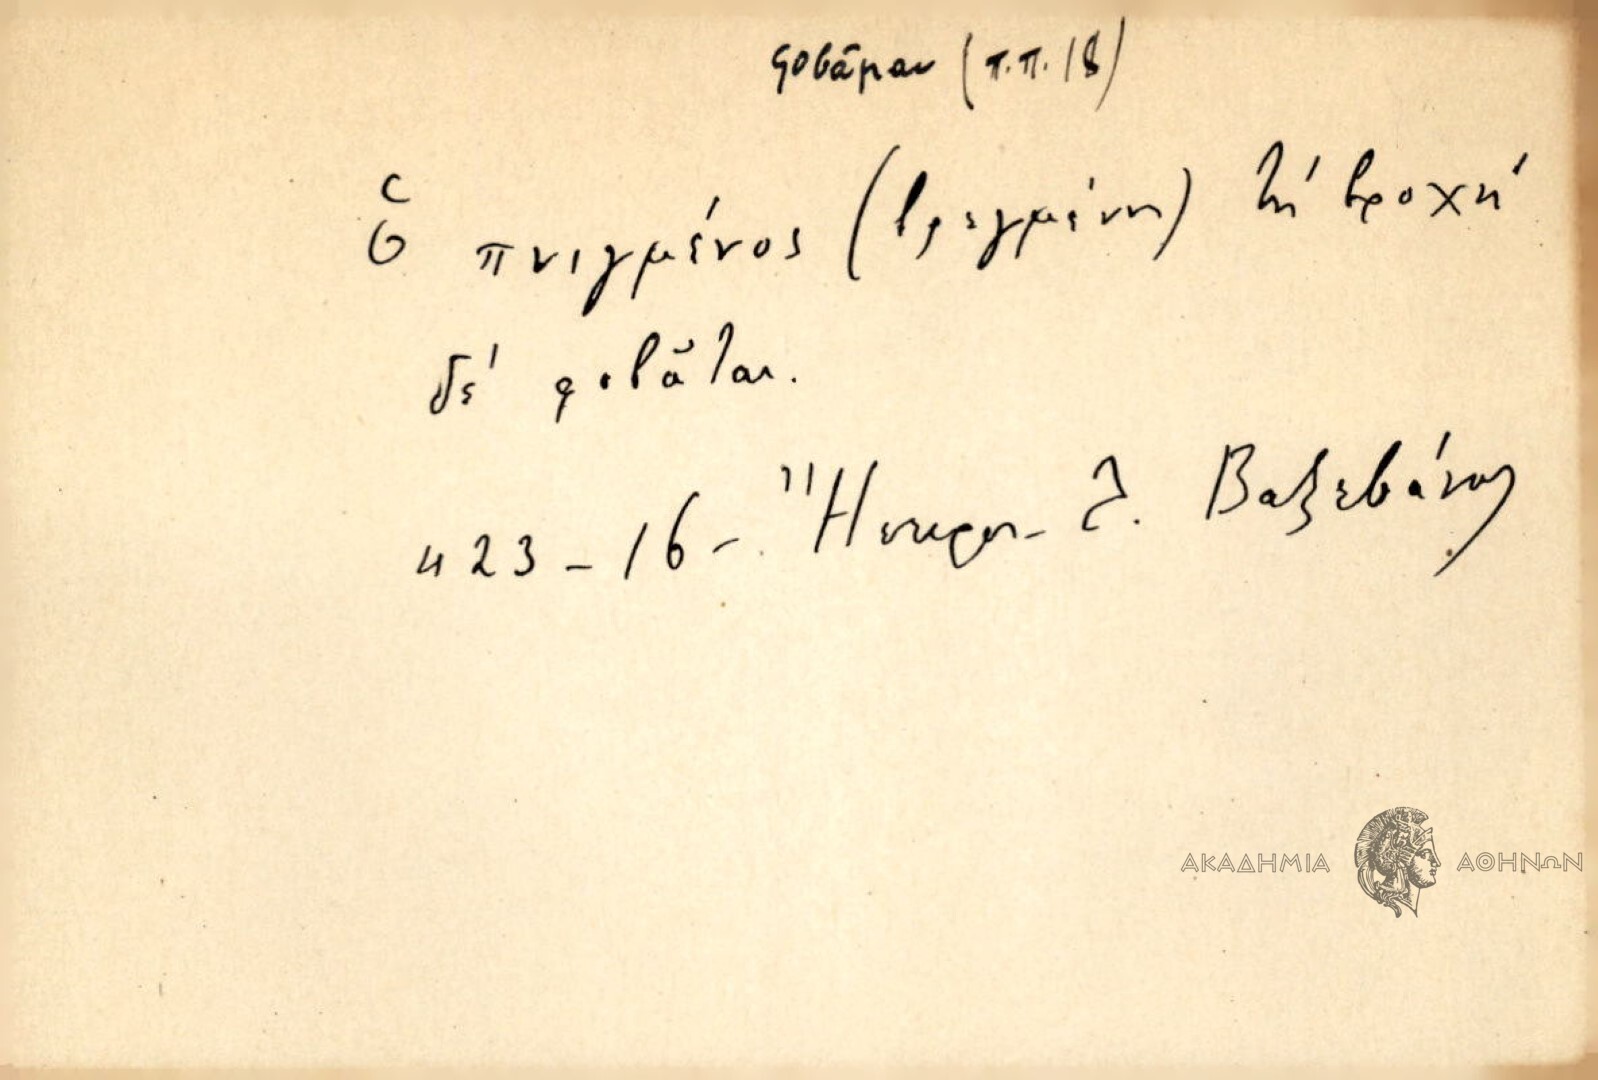 φοβᾶμαι (π.π. 18)
Ὁ πνιγμένος (βρεγμένη) τή βροχή
δέ φοβᾶται.
423 - 16 - Ἤπειρος - Λ. Βαξεβάνος
ΑΚΑΔΗΜΙΑ ΑΘΗΝΩΝ